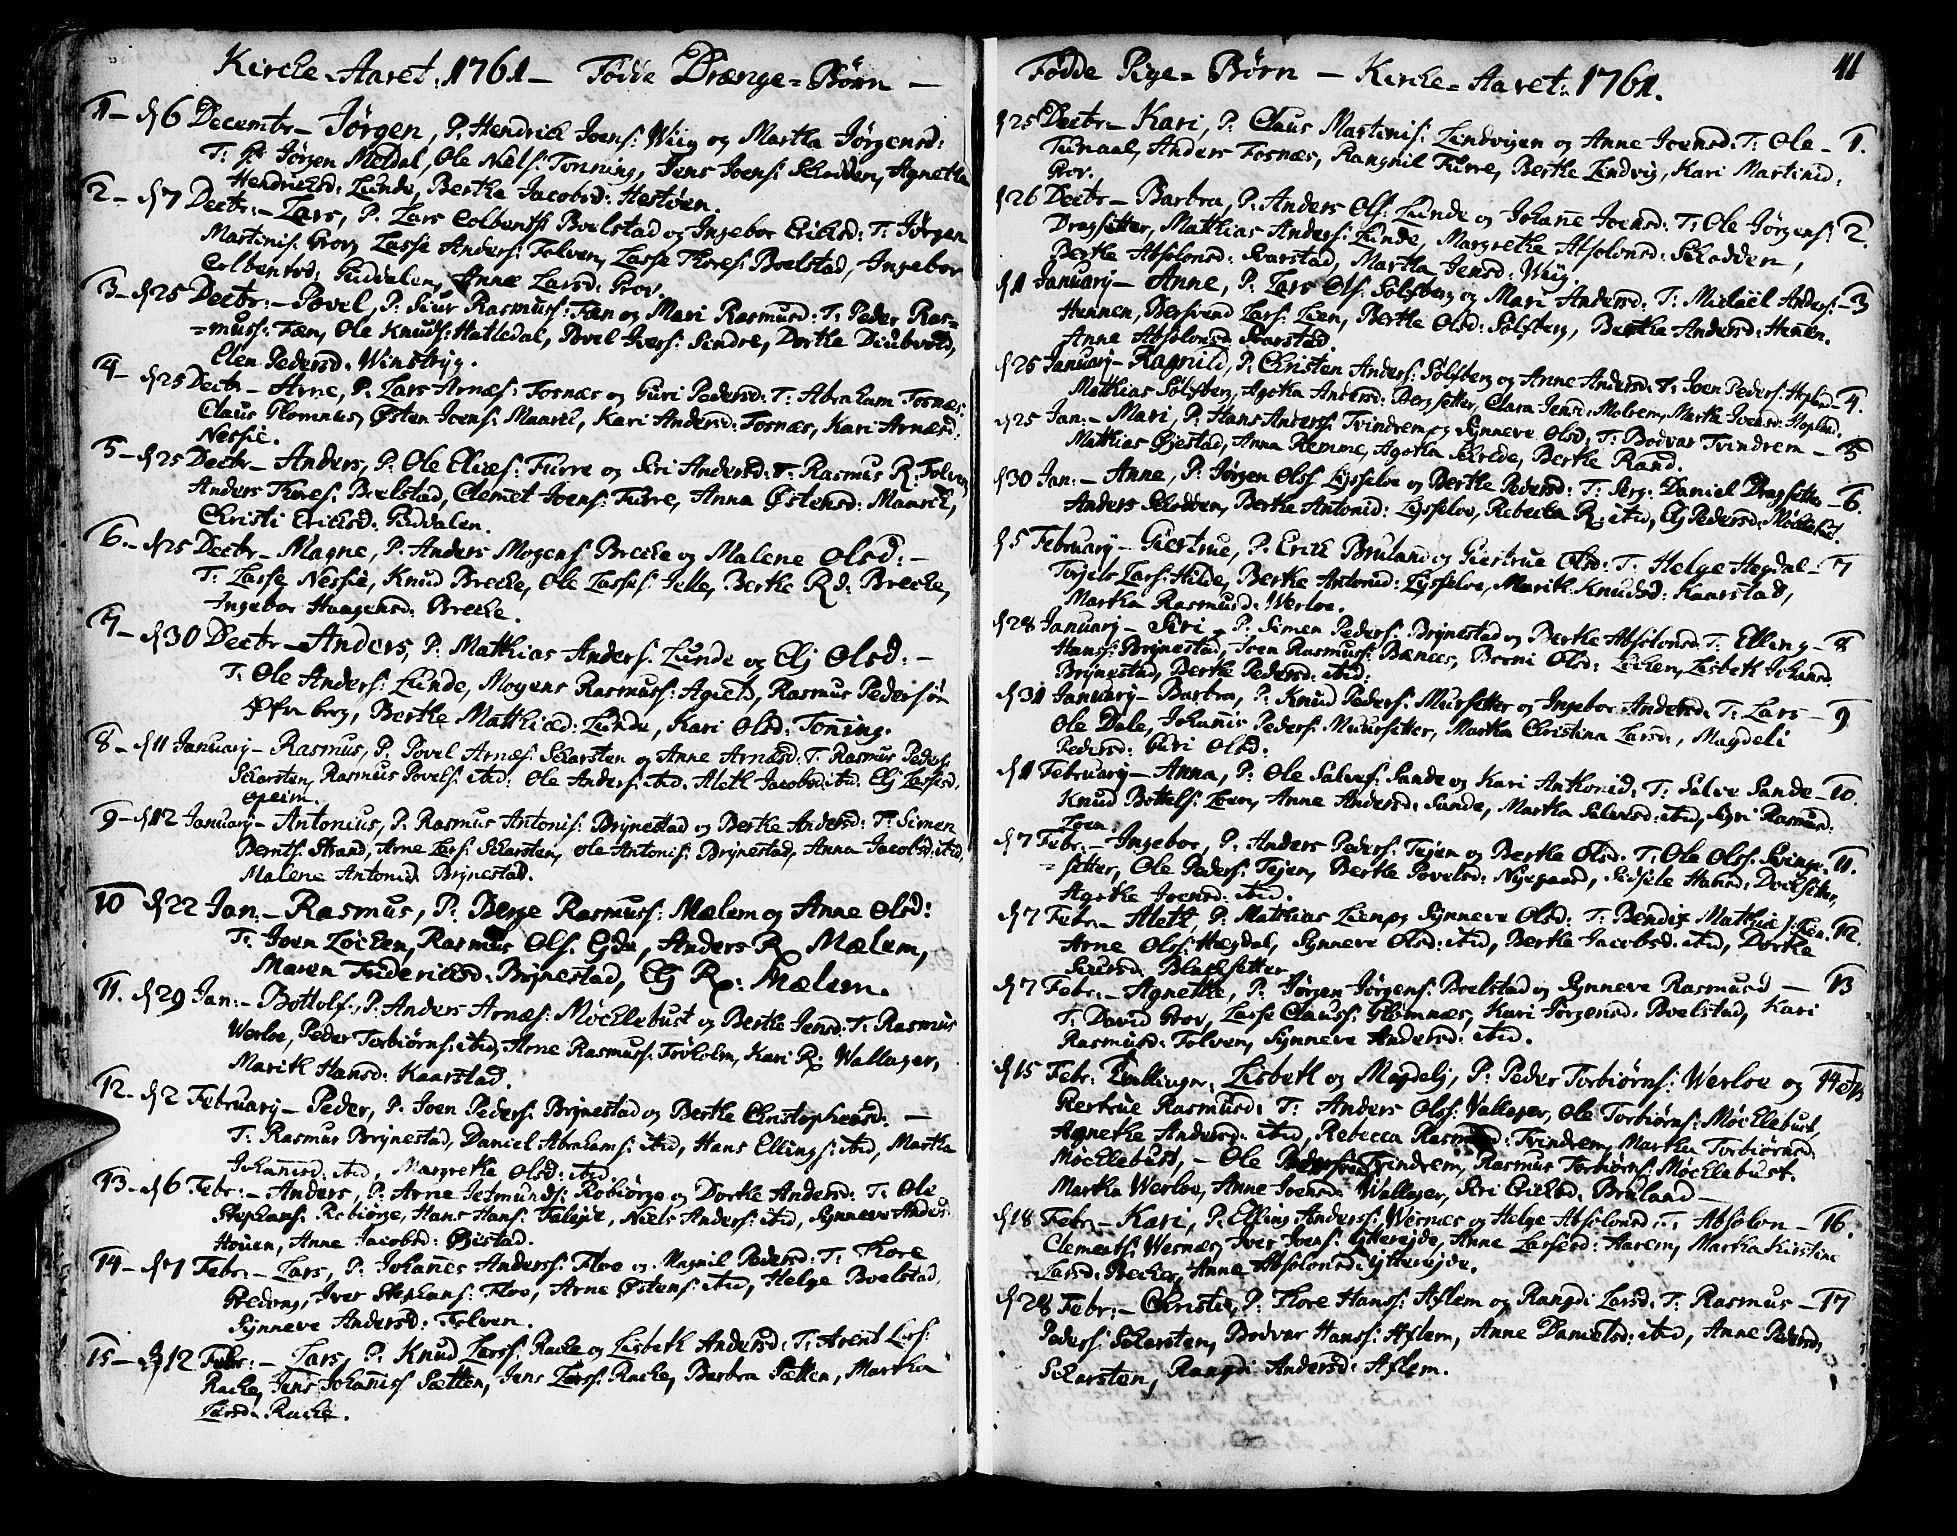 Kirche-Aaret 1761 — Fødde Drænge-Børn —
1 — d 6 Decembr — Jørgen, P. Hendrich Joens: Wiig og Martha Jørgensd:
T: Jørgen Meldal, Ole Niels: Tonning, Jens Joens: Schodden, Agnetha
Hendrichsd: Lunde, Berthe Jacobsd: Hestøen.
2 — d 7 Decbr: — Lars, P. Lars Colbents: Boelstad og Ingebor Erichsd: T: Jørgen
Martinis: Grov, Lasse Anders: Folven, Lasse Thores: Boelstad, Ingebor
Colbentsd: Guddalen, Anne Larsd: Grov.
3 — d 25 Decbr: — Povel, P: Siur Rasmus: Fæn og Mari Rasmusd: T: Peder Ras-
=muss: Fæn, Ole Knuds: Hatledal, Povel Ivers: Sindre, Dorthe Diubvold,
Elen Pedersd: Winsryg.
4 — d 25 Decbr — Arne, P: Lars Arnes: Fosnæs og Guri Pedersd: T: Abraham Fosnæs,
Claus Glomnæs, Østen Joens: Maareh, Kari Andersd: Fosnæs, Kari Arnæsd:
Nessie.
5 — d 25 Decbr — Anders, P: Ole Eliæs: Furre og Siri Andersd: T: Rasmus R: Folven
Anders Thores: Boelstad, Clemet Joens: Furre, Anna Østensd: Maareh,
Christi Erichsd: Guddalen.
6. — d 25 Decbr — Magne, P: Anders Mogens: Breche og Malene Olsd: —
T: Lasse Nessie, Knud Breche, Ole Lasses: Ielle, Berthe Rd: Breche,
Ingebor Haagensd: Breche.
7 — d 30 Decbr — Anders, P: Mathias Anders: Lunde og Elj Olsd: —
T: Ole Anders: Lunde, Mogens Rasmuss: Ageld, Rasmus Pedersøn
berg, Berthe Matthiæd: Lunde, Kari Olsd: Toning.
8 — d 11 January — Rasmus, P. Povel Arnæs: Scharsten og Anne Arnæsd: T. Rasmus Peders:
Scharsten, Rasmus Povels: ibid: Ole Anders: ibid. Aleth Jacobsd: ibid. Elj Lassesd.
Opeim.
9 — d 12 January — Antonius, P. Rasmus Antonis: Brynestad og Berthe Andersd: T: Simen
Bernts: Strand, Arne Lars: Scharsten, Ole Antonis: Brynestad, Anna Jacobsd: ibid,
Malene Antonid Brynestad.
10 d 22 Jan: — Rasmus, P. Berge Rasmuss: Mælem og Anne Olsd:
T: Joen Løchen, Rasmus Ols: Gde, Anders R Mælem,
Maren Friderichsd: Brynestad, Elj R: Mælem.
11. d 29 Jan: — Bottolf, P: Anders Arnæs: Møchlebust og Berthe Jensd: T: Rasmus
Werloe, Peder Torbiørns: ibid, Arne Rasmuss: Torholm, Kari R: Wallager,
Marith Hansd: Kaarstad.
12. d 2 February — Peder, P. Joen Peders: Brynestad og Berthe Christophersd: —
T: Rasmus Brynestad, Daniel Abrahams: ibid, Hans Ellings: ibid, Martha
Johannsd: ibid, Margrethe Olsd: ibid.
13 — d 6 Febr: — Anders, P: Arne Jetmunds: Robiørge og Dorthe Andersd: T. Ole
Stephans: Robiørge, Hans Hans: Faleyde, Niels Anders: ibid, Synneve Anders:
Houen, Anne Jacobsd: Øiestad.
14 — d 7 Febr: — Lars, P: Johannes Anderss: Floe og Magnil Pedersd: T: Thore
Gredong, Iver Stephans: Floe, Arne Østens: ibid, Helge Boelstad,
Synneve Andersd: Folven.
15 — d 12 Febr: — Lars, P. Knud Larss: Rache og Lisbeth Andersd: T: Arent Lars:
Rache, Jens Johannes: Sætten, Jens Larss: Rache, Barbra Sætten, Martha
Larsd: Rache.
11
Fødde Pige-Børn — Kirche-Aaret: 1761.
d 25 Decbr — Kari, P: Claus Martinis: Lindvigen og Anne Joensd: T: Ole — 1.
Tenaal, Anders Fosnæs, Rangnil Furre, Berthe Lindvig, Kari Martinid:
Grov.
d 26 Decbr — Barbra, P: Anders Ols: Lunde og Johane Joensd: T: Ole Jørgens: 2.
Dragsetter, Mathias Anders: Lunde, Margrethe Absolonsd: Schodden,
Berthe Absolonsd: Svarstad, Martha Jensd: Wiig.
d 1 January — Anne, P. Lars Ols: Sølfberg og Mari Andersd: T: Michael Anders: — 3
Hennen, Bersvend Lars: Lien, Berthe Olsd: Sølfberg, Berthe Andersd: Henen.
Anne Absolonsd Svarstad.
d 25 January — Ragnild, P. Christen Anders: Sølfberg og Anne Andersd: T: Joen Peders: Hopland — 4.
Mathias Sølfberg, Agotha Andersd: Bergsetter, Clara Jensd: Molvem, Marthe Joensd: Hopland.
d 25 Jan: — Mari, P: Hans Anderss: Tvindrem og Synneve Olsd: T: Bodvar Tvindrem — 5
Mathias Øjestad, Anna Remme, Agotha Schrede, Berthe Rand.
d 30 Jan: — Anne, P: Jørgen Ols: Lysseloe og Berthe Pedersd: T: Serg: Daniel Dragsetter — 6.
Anders Schodden, Berthe Antonid: Lysseloe, Rebecca R: ibid, Elj Pedersd: Møchlebust.
d 5 February — Giertrue, P. Erich Bruland og Giertrue Olsd: T: Helge Hegdal — 7
Torjels Lars: Hilde, Berthe Antonid: Lysseloe, Marith Knudsd: Kaarstad,
Martha Rasmusd: Werloe.
d 28 January — Siri, P: Simen Peders: Brynestad og Berthe Absolonsd: T: Elling — 8
Hans: Brynestad, Joen Rasmus: Bænces, Borni Olsd: Lechen, Lisbeth Johansd.
Brynestad, Berthe Pedersd: ibid:
d 31 January — Barbra, P: Knud Peders: Mursetter og Ingebor Andersd: T: Lars — 9
Ole Dale, Johannis Peders: Muursetter, Martha Christina Larsd:, Magdeli
Pedersd: Guri Olsd:
d 1 February — Anna, P: Ole Salves: Sande og Kari Anthonid: T: Salve Sande — 10.
Knud Bottels: Loen, Anne Andersd: Sande, Martha Salvesd: ibid, Syri Rasmusd:
Loen.
d 7 Febr: — Ingebor, P: Anders Peders: Tejen og Berthe Olsd. T: Ole Ols: Svinge- 11.
=setter, Ole Peders: Tejen, Berthe Povelsd: Nyegaard, Sidsele Hansd: Dochsetter,
Agothe Joensd: ibid.
d 7 Febr: — Aleth, P: Matthias Lien og Synneve Olsd: T: Bendix Mathiæ s: Lien. 12.
Arne Ols: Hægdal, Synneve Olsd: ibid, Berthe Jacobsd: ibid, Dorthe
Siursd: Blachsetter.
d 7 Febr: — Agnethe, P: Jørgen Jørgens: Boelstad og Synneve Rasmusd — 13
T: David Grov, Lasse Clauss: Glomnæs, Kari Jørgensd: Boelstad, Kari
Rasmusd: Folven, Synneve Andersd: ibid.
d 15 Febr: Tvillinger, Lisbeth og Magdelj, P: Peder Torbiørns: Werloe og 14 & 15
Gertrue Rasmusd: T: Anders Olss: Vallager, Ole Torbiørns: Møchlebust,
Agnethe Andersd: ibid, Rebecca Rasmusd: Tvindrem, Martha Torbiørnsd:
Møchlebust, — Ole Tvindrem, Rasmus Torbiørns: Møchlebust.
Martha Werloe, Anne Joensd: Wallager, Siri Erichsd: Bruland —
d 18 Febr — Kari, P. Elling Anderss: Wernæs og Helge Absolonsd: T: Absolon — 16.
Clements: Wesnæs, Iver Joens: Ytterejde, Anne Larsesd: Aarem, Martha Kirstine
Larsd: Becher, Anne Absolonsd: Ytterejde.
d 28 Febr: — Christie, P: Thore Hanss: Aflem og Rangdi Larsd: T: Rasmus — 17
Peders: Scharsten, Bodvar Hanss: Aflem, Anne Danielsd: ibid, Anne Pedersd:
Scharsten, Rangdi Andersd: Aflem.